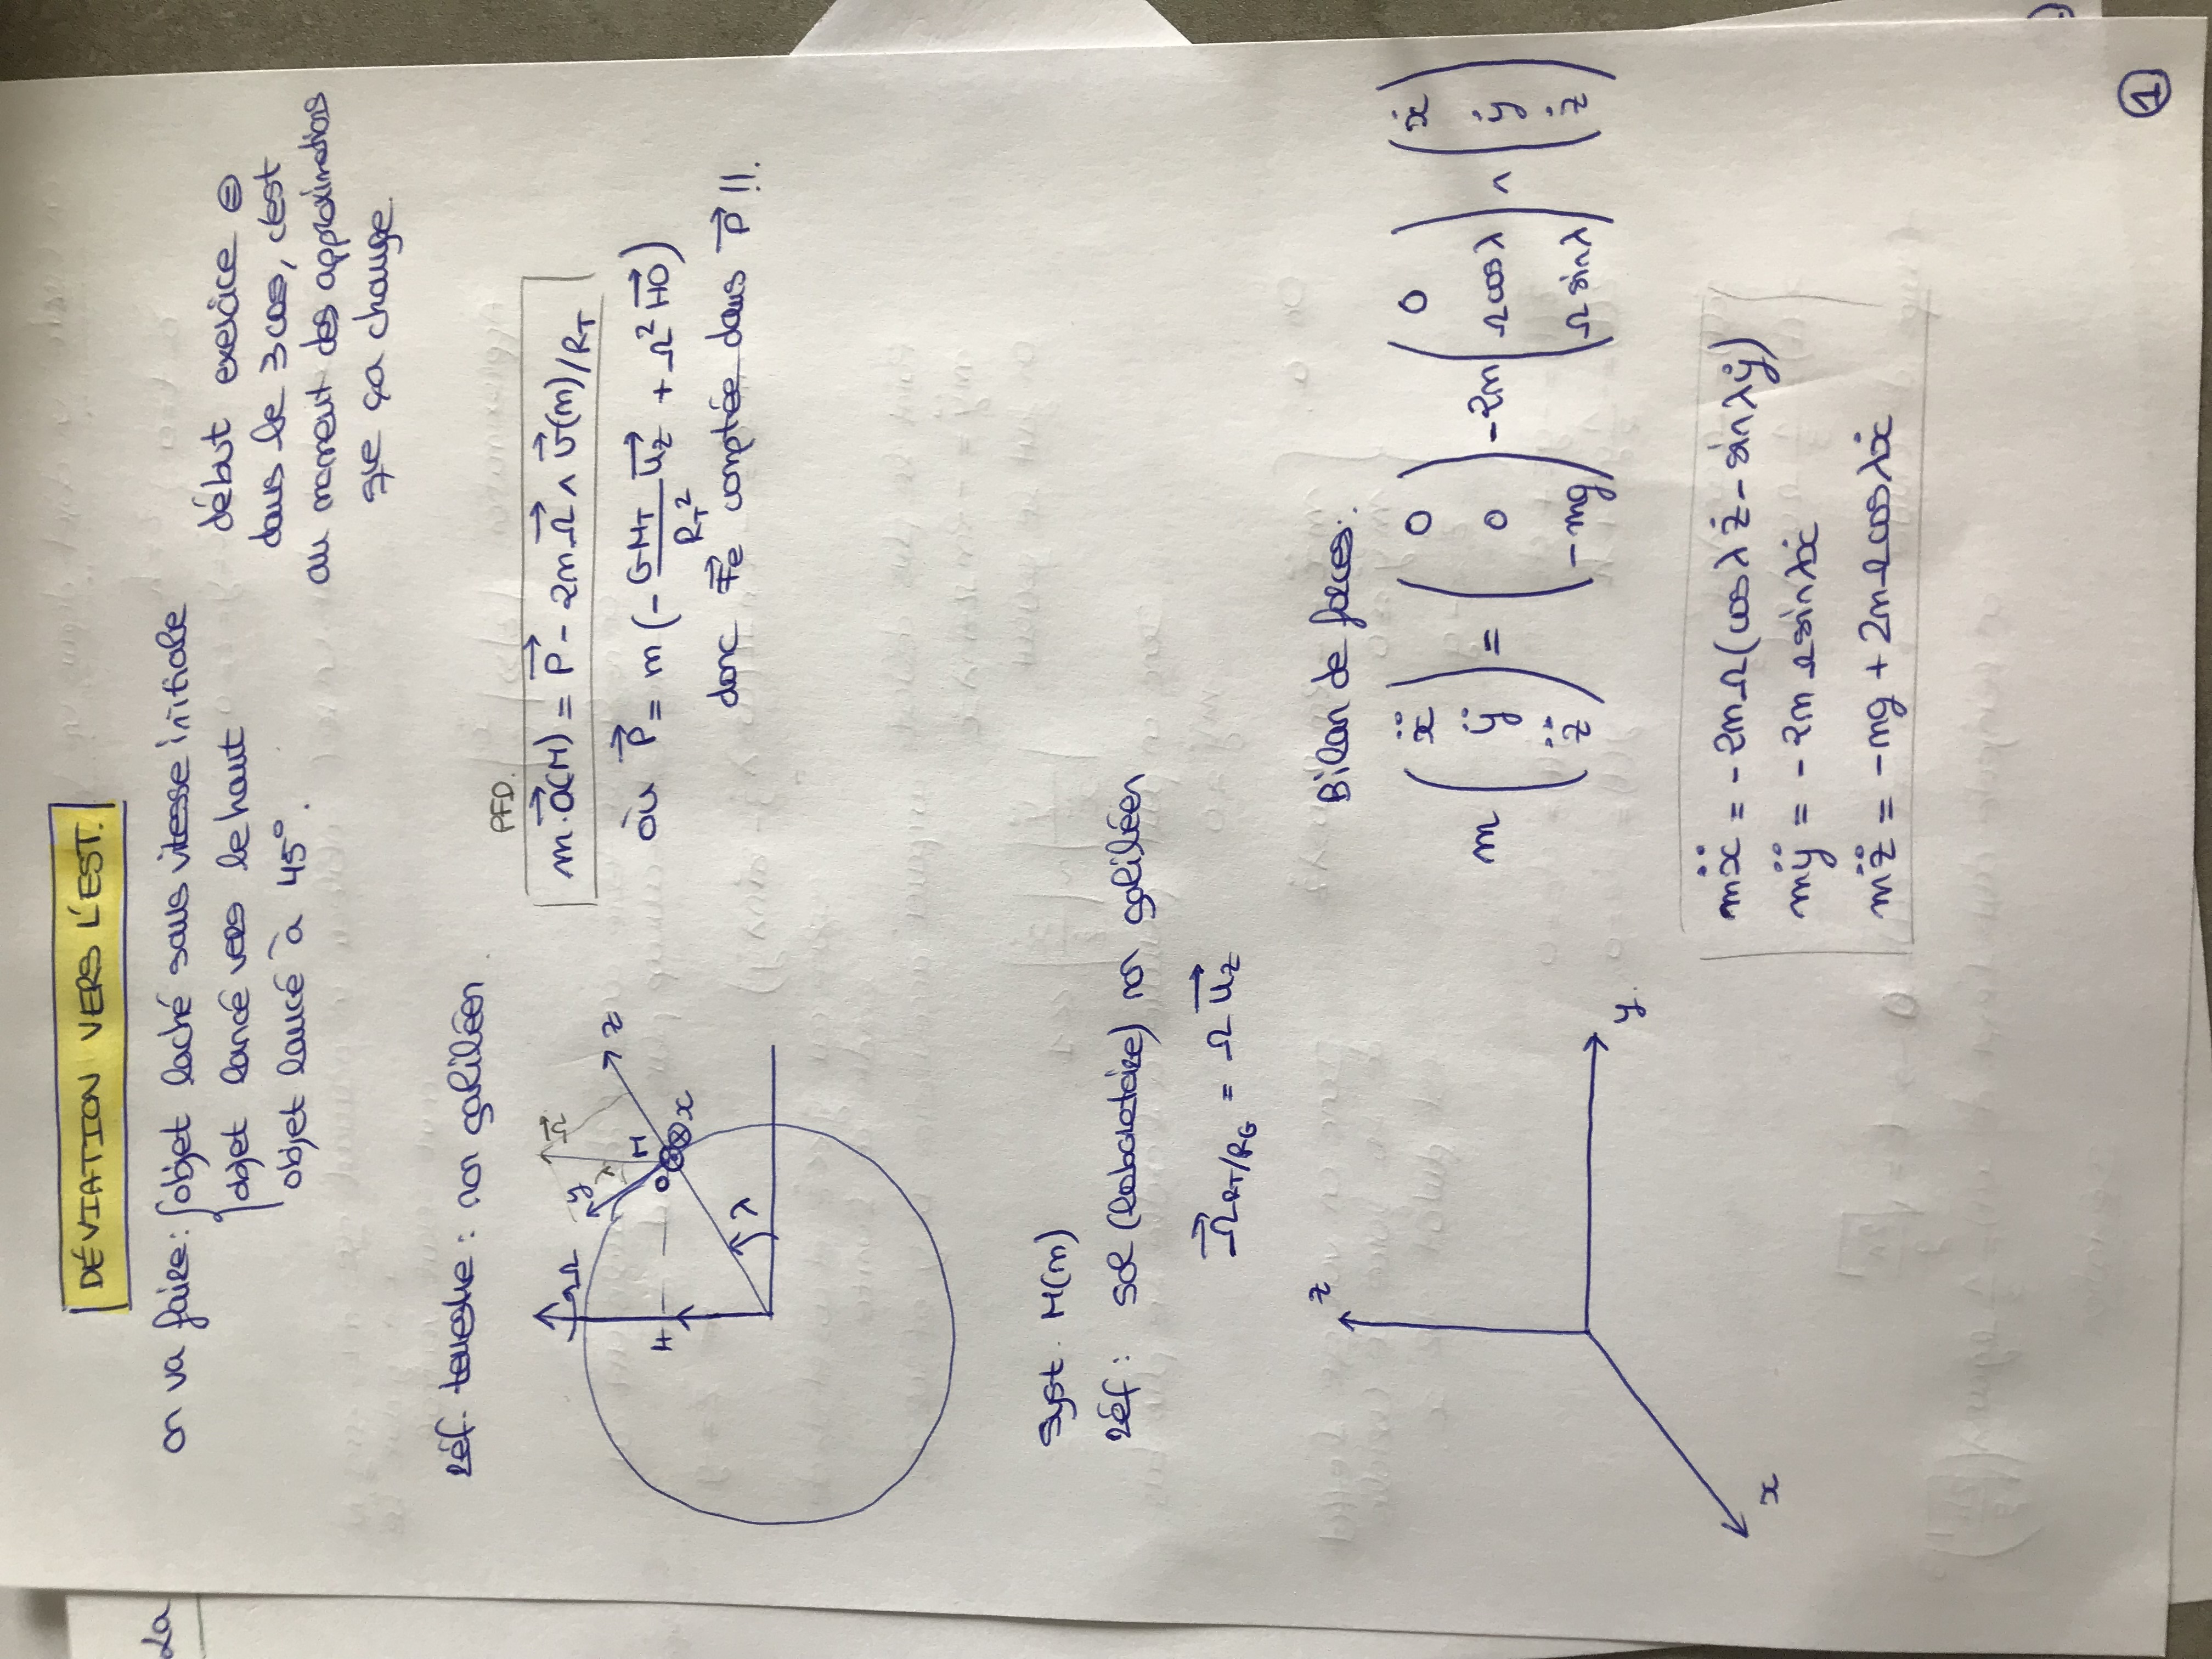 DÉVIATION VERS L'EST.
2a
on va faire : objet laché sans vitesse initiale
objet lancé vers le haut
objet lancé à 45°.
début exercice ⊜
dans le 3 cas, c'est
au moment des approximations
que ça change.
réf. terrestre : non galiléen.
PFD.
m.a(M) = P - 2m Ω ∧ v(m)/RT
où P = m (- GMT/RT² uz + Ω² HO)
donc Fe comptée dans P !!.
Ω
y
λ
Ω
z
M
H
O
x
λ
syst. M(m)
réf : sol (laboratoire) non galiléen
Ω RT/RG = Ω uz
z
y.
x
Bilan de forces :
m (ẍ ÿ z̈) = (0 0 -mg) - 2m (0 Ωcosλ Ωsinλ) ∧ (ẋ ẏ ż)
mẍ = -2mΩ(cosλ ż - sinλ ẏ)
mÿ = -2mΩsinλẋ
mz̈ = -mg + 2mΩcosλẋ
1